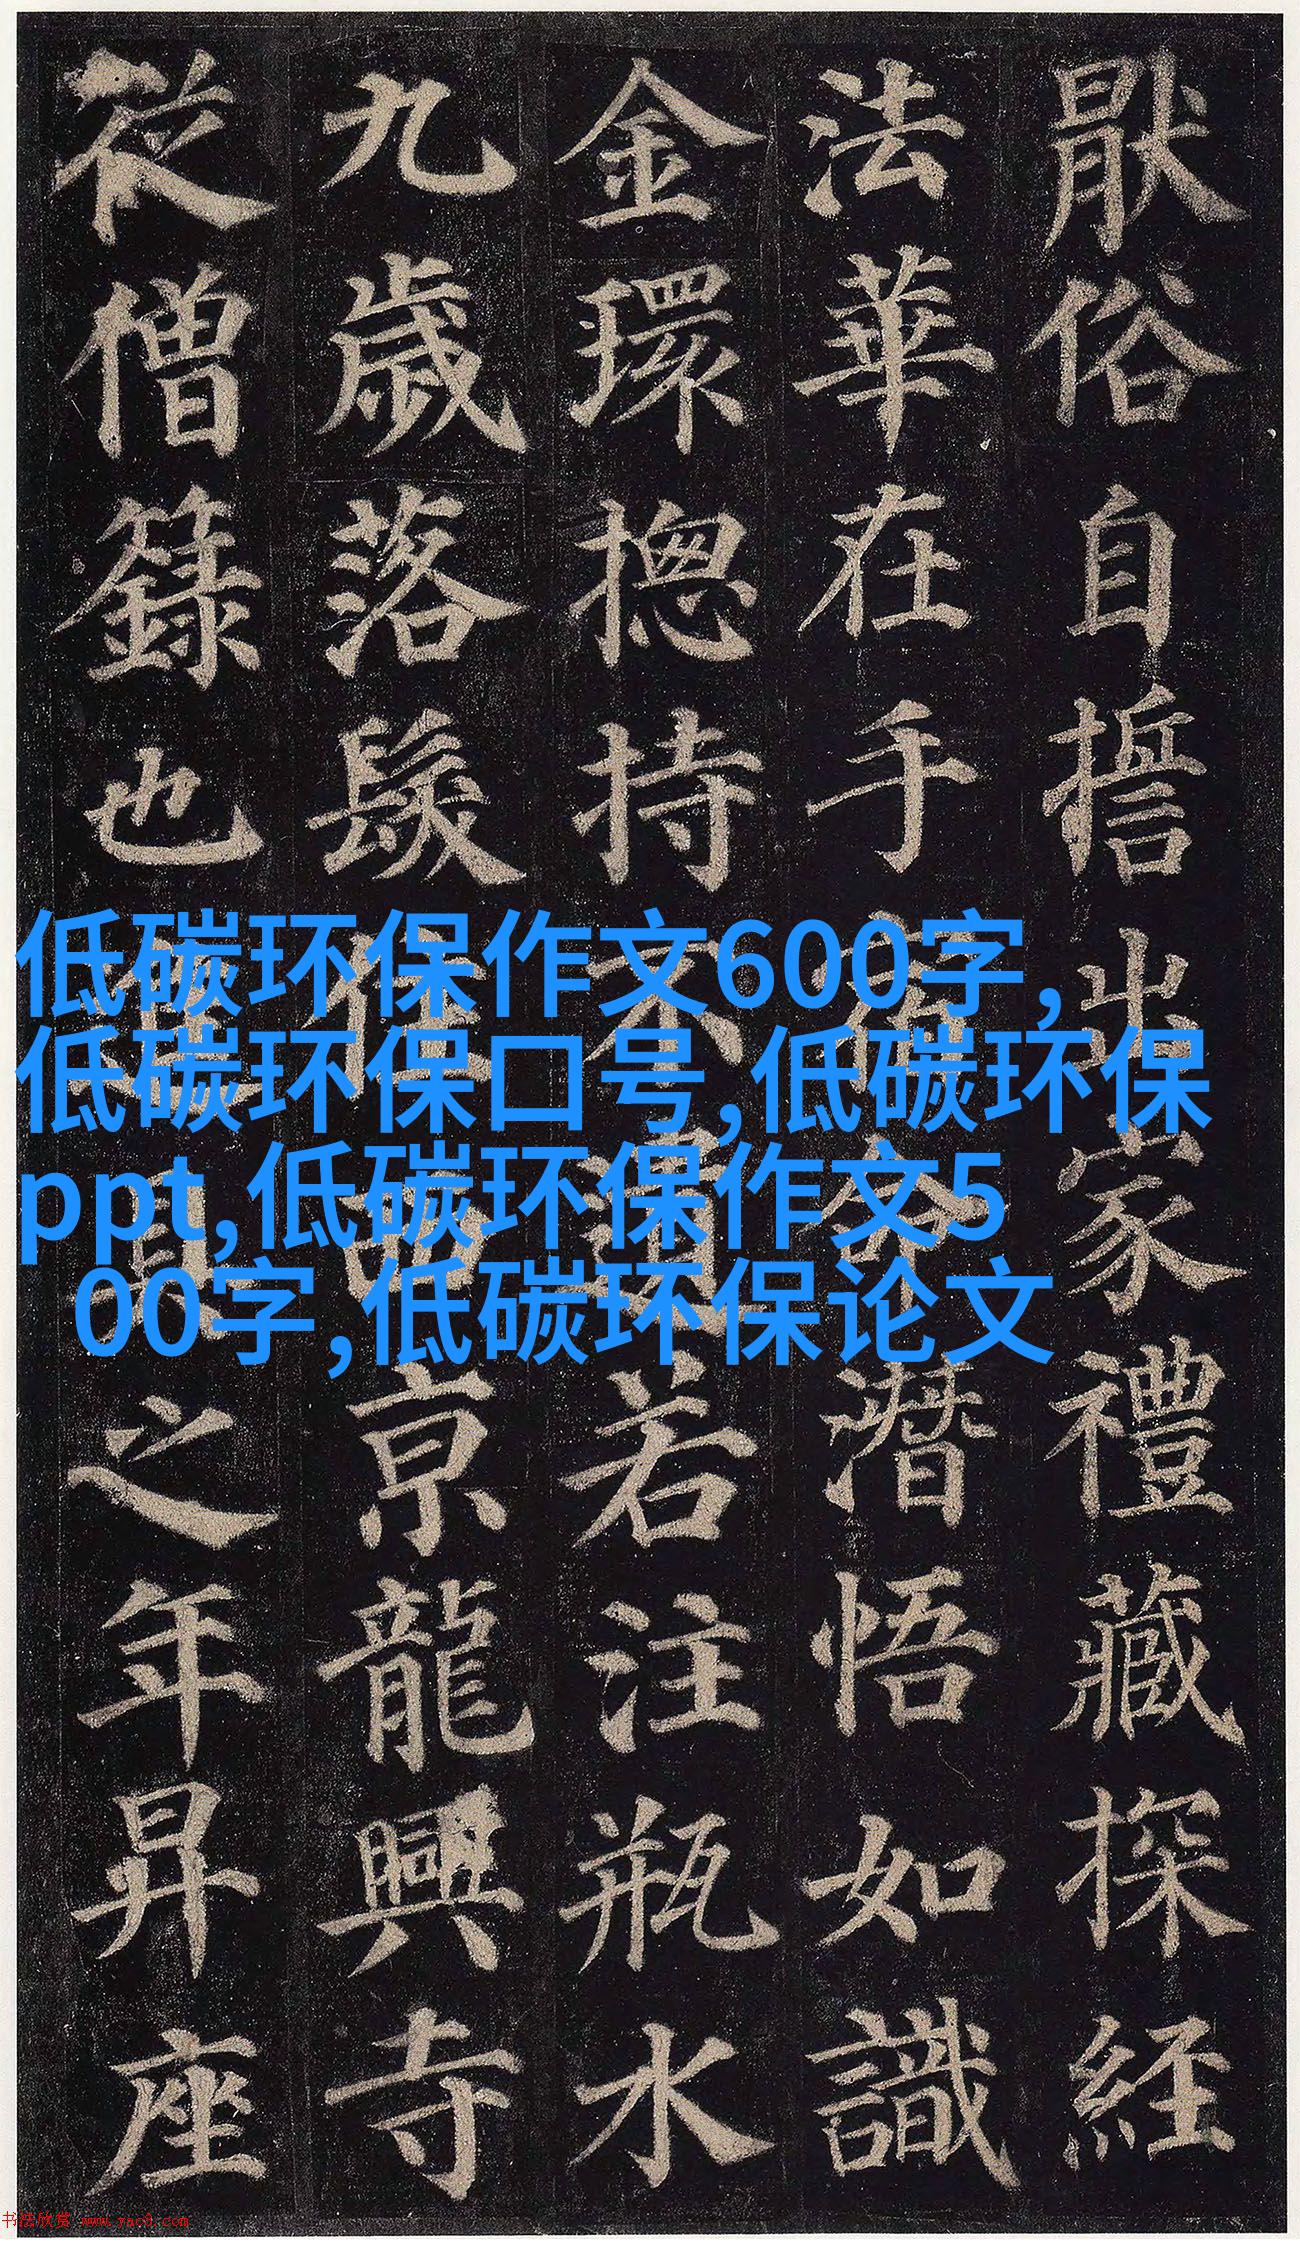 猒俗自誓出家禮藏探経
法華在手潜悟如識
金環揔持不遺若注瓶水
九歲落髮住西京龍興寺
従僧籙也進具之年昇座
低碳环保作文600字,
低碳环保口号,低碳环保
ppt,低碳环保作文5
00字,低碳环保论文
书法欣赏 www.yac8.com